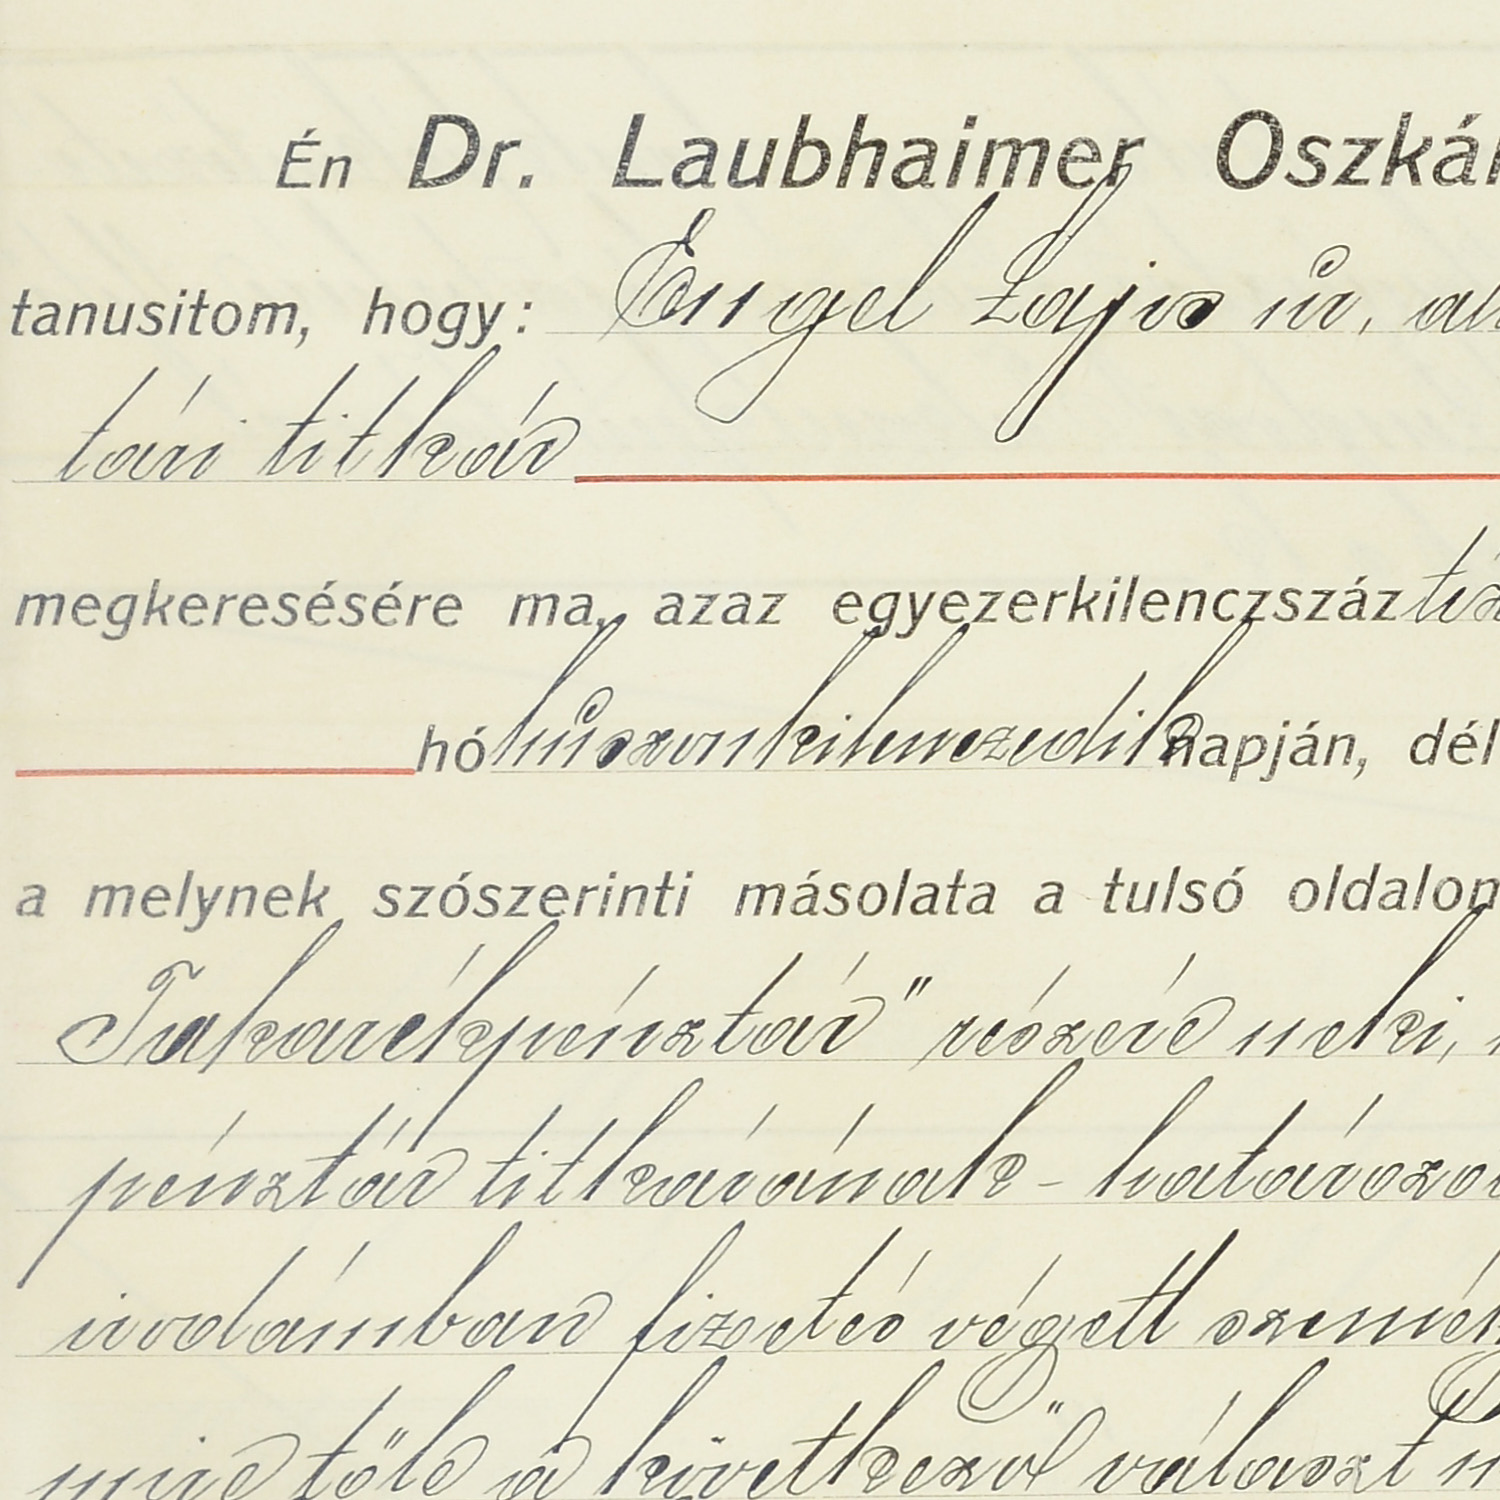 Én Dr. Laubhaimer Oszkár
tanusitom, hogy: Engel Lajos úr,
tári titkár
megkeresésére ma, azaz egyezerkilenczszáz
hó húszonkilenczedik napján, dél
a melynek szószerinti másolata a tulsó oldalon
Takarékpénztár" részére neki,
pénztár titkárának - határozo
irodámban fizetés végett szemé
mire tőle a következő választ